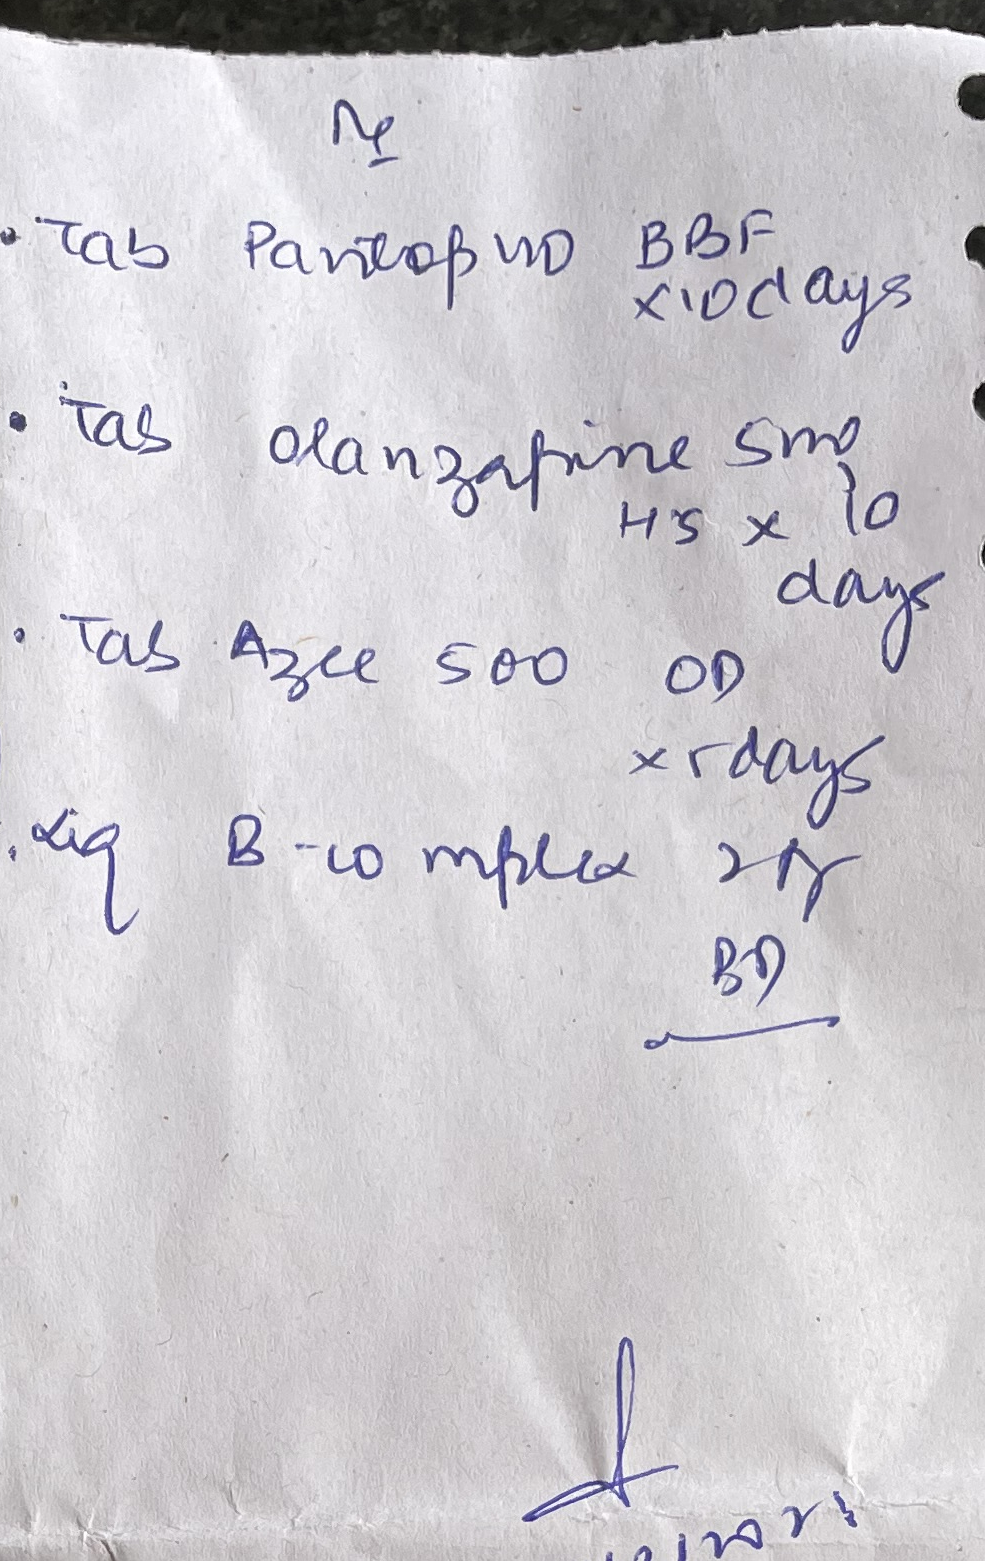 Rx
• Tab Pantop 40 BBF
x10 days
• Tab Olanzapine 5mg
HS x 10
days
• Tab Azee 500 OD
x 5 days
• Liq B-complex 2
BD